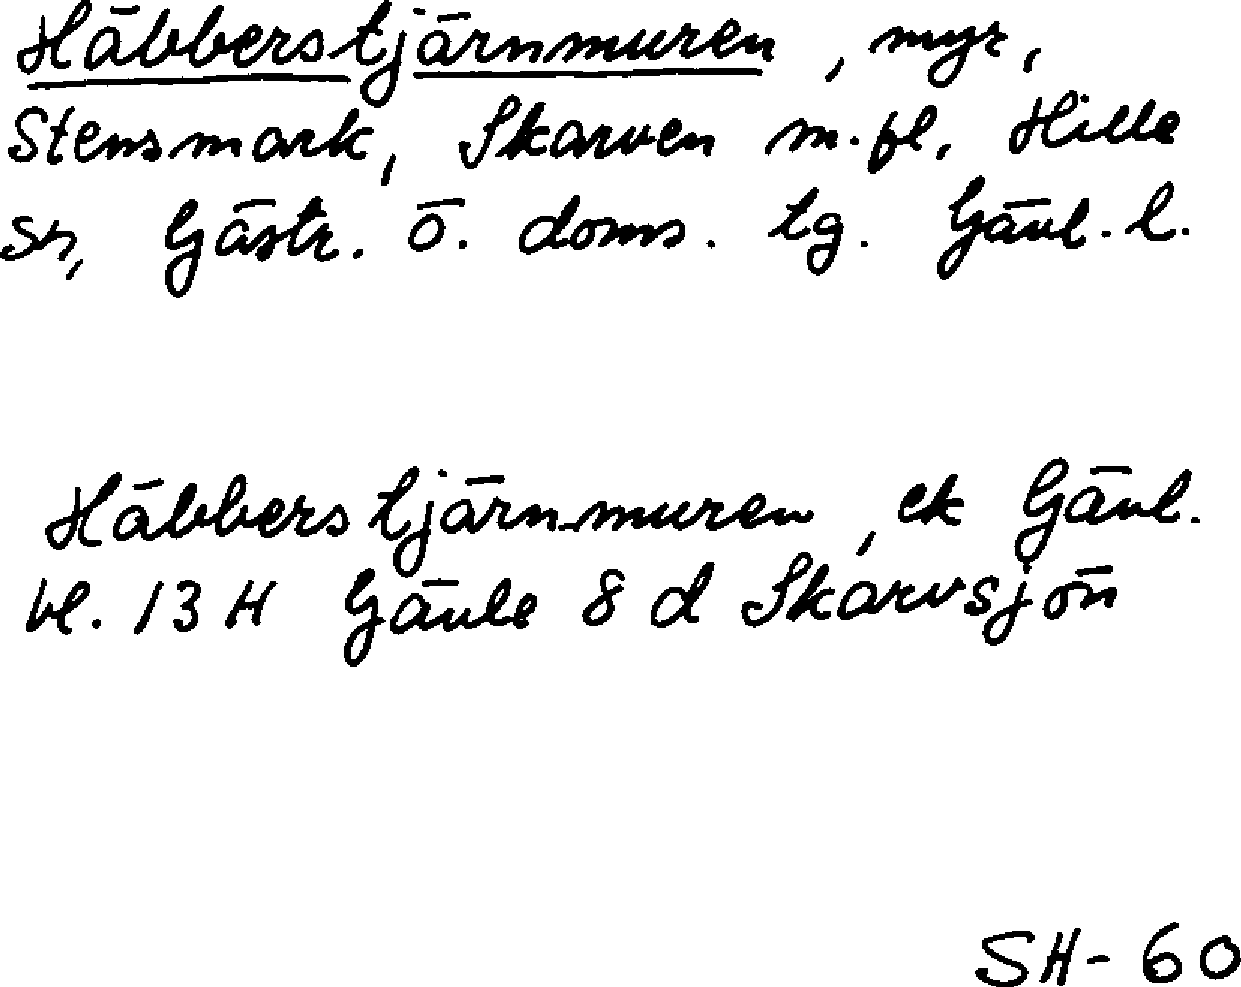 Häbberstjärnmuren, myr,
Stensmark, Skarven m.fl. Hille
sn, Gästr. ö. doms. tg. Gävl. l.
Häbberstjärnmuren, ek Gävl.
bl. 13 H Gävle 8 d Skarvsjön
SH-60